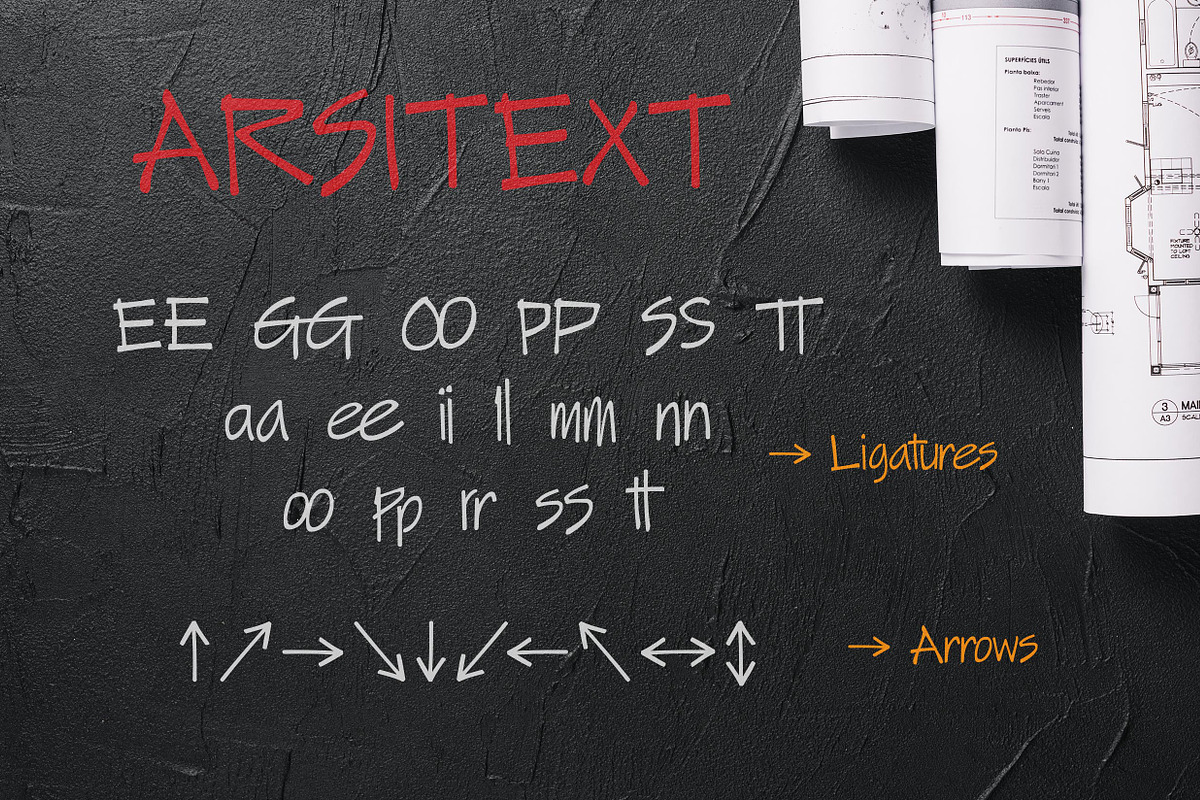 ARSITEXT
EE GG OO PP SS TT
aa ee ii ll mm nn
oo pp rr ss tt
→ Ligatures
↑ ↗ → ↘ ↓ ↙ ← ↖ ↔ ↕
→ Arrows
113
SUPERFÍCIES ÚTILS
Planta baixa:
Rebedor
Pas inferior
Traster
Aparcament
Serveis
Escala
Planta Pis:
Sala Cuina
Distribuidor
Dormitori 1
Dormitori 2
Bany 1
Escala
FIXTURE
MOUNTED
TO LOFT
CEILING
3
A3